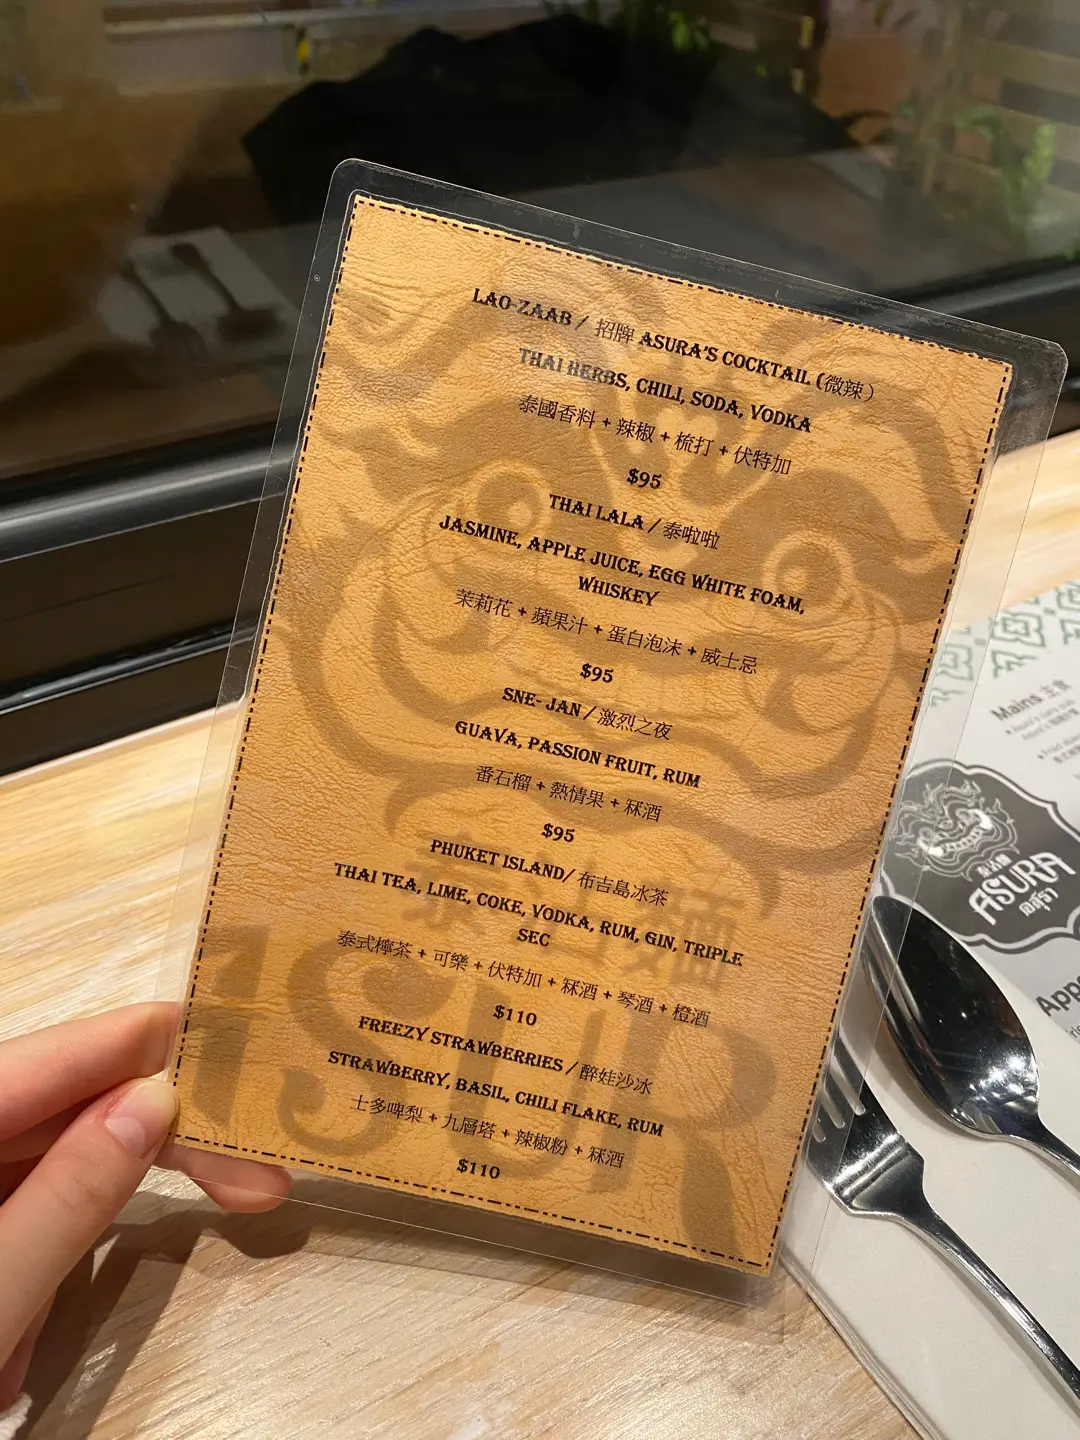 LAO-ZAAB / 招牌 ASURA'S COCKTAIL (微辣)
THAI HERBS, CHILI, SODA, VODKA
泰國香料 + 辣椒 + 梳打 + 伏特加
$95
THAI LALA / 泰啦啦
JASMINE, APPLE JUICE, EGG WHITE FOAM,
WHISKEY
茉莉花 + 蘋果汁 + 蛋白泡沫 + 威士忌
$95
SNE- JAN / 激烈之夜
GUAVA, PASSION FRUIT, RUM
番石榴 + 熱情果 + 冧酒
$95
PHUKET ISLAND/ 布吉島冰茶
THAI TEA, LIME, COKE, VODKA, RUM, GIN, TRIPLE
SEC
泰式檸茶 + 可樂 + 伏特加 + 冧酒 + 琴酒 + 橙酒
$110
FREEZY STRAWBERRIES / 醉娃沙冰
STRAWBERRY, BASIL, CHILI FLAKE, RUM
士多啤梨 + 九層塔 + 辣椒粉 + 冧酒
$110
Mains 主食
ASURA
อสุรา
App